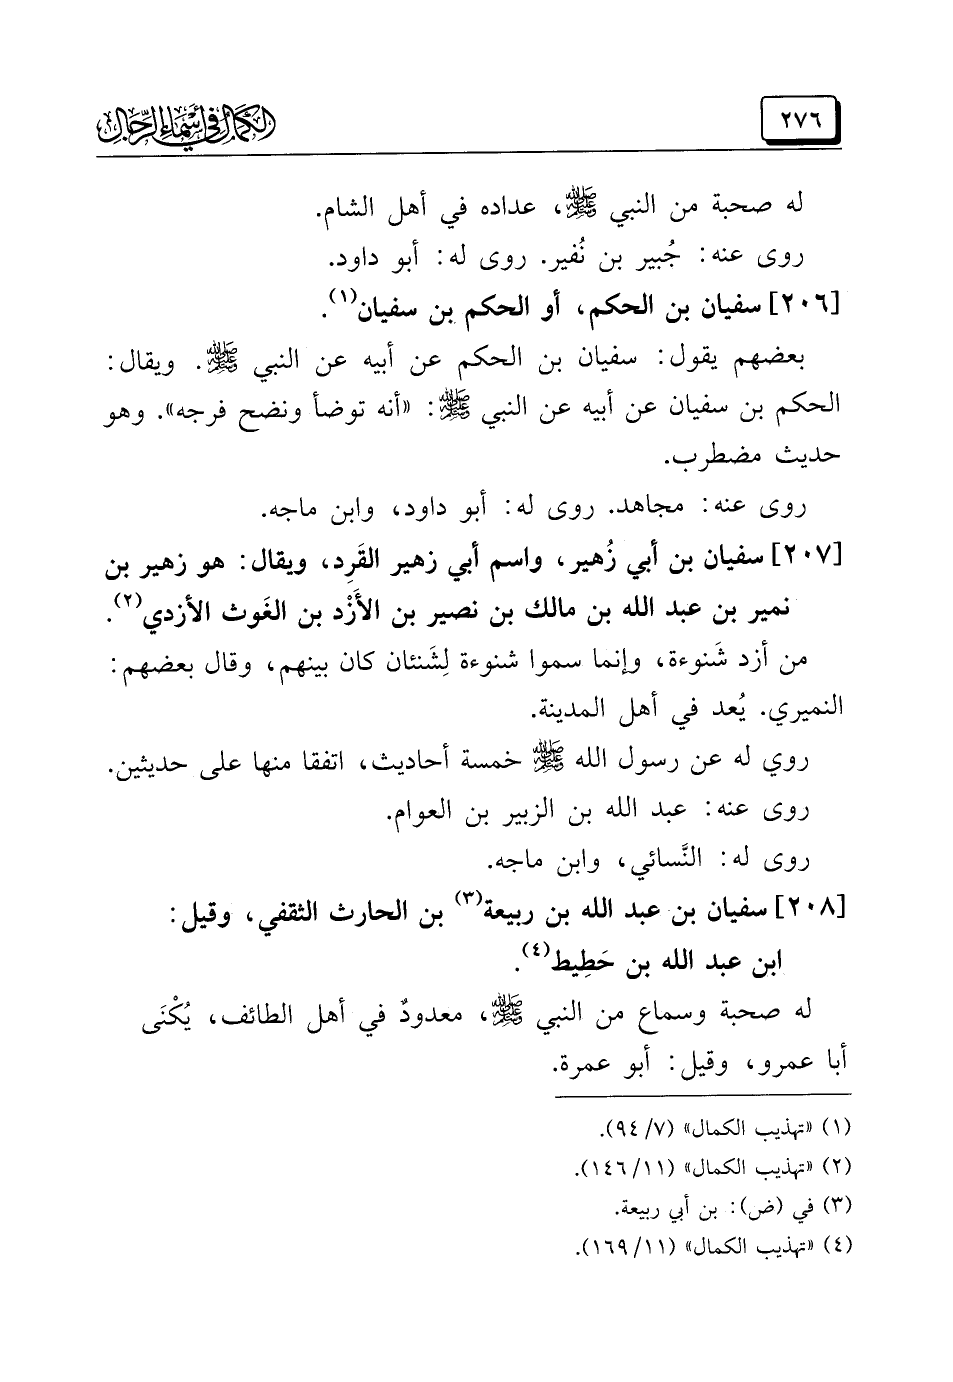 ٢٧٦
الكمال في أسماء الرجال
له صحبة من النبي ﷺ، عداده في أهل الشام.
روى عنه: جُبير بن نُفير. روى له: أبو داود.
[٢٠٦] سفيان بن الحكم، أو الحكم بن سفيان(١).
بعضهم يقول: سفيان بن الحكم عن أبيه عن النبي ﷺ. ويقال:
الحكم بن سفيان عن أبيه عن النبي ﷺ: «أنه توضأ ونضح فرجه». وهو
حديث مضطرب.
روى عنه: مجاهد. روى له: أبو داود، وابن ماجه.
[٢٠٧] سفيان بن أبي زُهير، واسم أبي زهير القَرِد، ويقال: هو زهير بن
نمير بن عبد الله بن مالك بن نصير بن الأَزْد بن الغَوث الأزدي(٢).
من أزد شَنوءة، وإنما سموا شنوءة لِشَنئان كان بينهم، وقال بعضهم:
النميري. يُعد في أهل المدينة.
روي له عن رسول الله ﷺ خمسة أحاديث، اتفقا منها على حديثين.
روى عنه: عبد الله بن الزبير بن العوام.
روى له: النَّسائي، وابن ماجه.
[٢٠٨] سفيان بن عبد الله بن ربيعة(٣) بن الحارث الثقفي، وقيل:
ابن عبد الله بن حَطِيط(٤).
له صحبة وسماع من النبي ﷺ، معدودٌ في أهل الطائف، يُكْنَى
أبا عمرو، وقيل: أبو عمرة.
(١) «تهذيب الكمال» (٩٤/٧).
(٢) «تهذيب الكمال» (١٤٦/١١).
(٣) في (ض): بن أبي ربيعة.
(٤) «تهذيب الكمال» (١٦٩/١١).